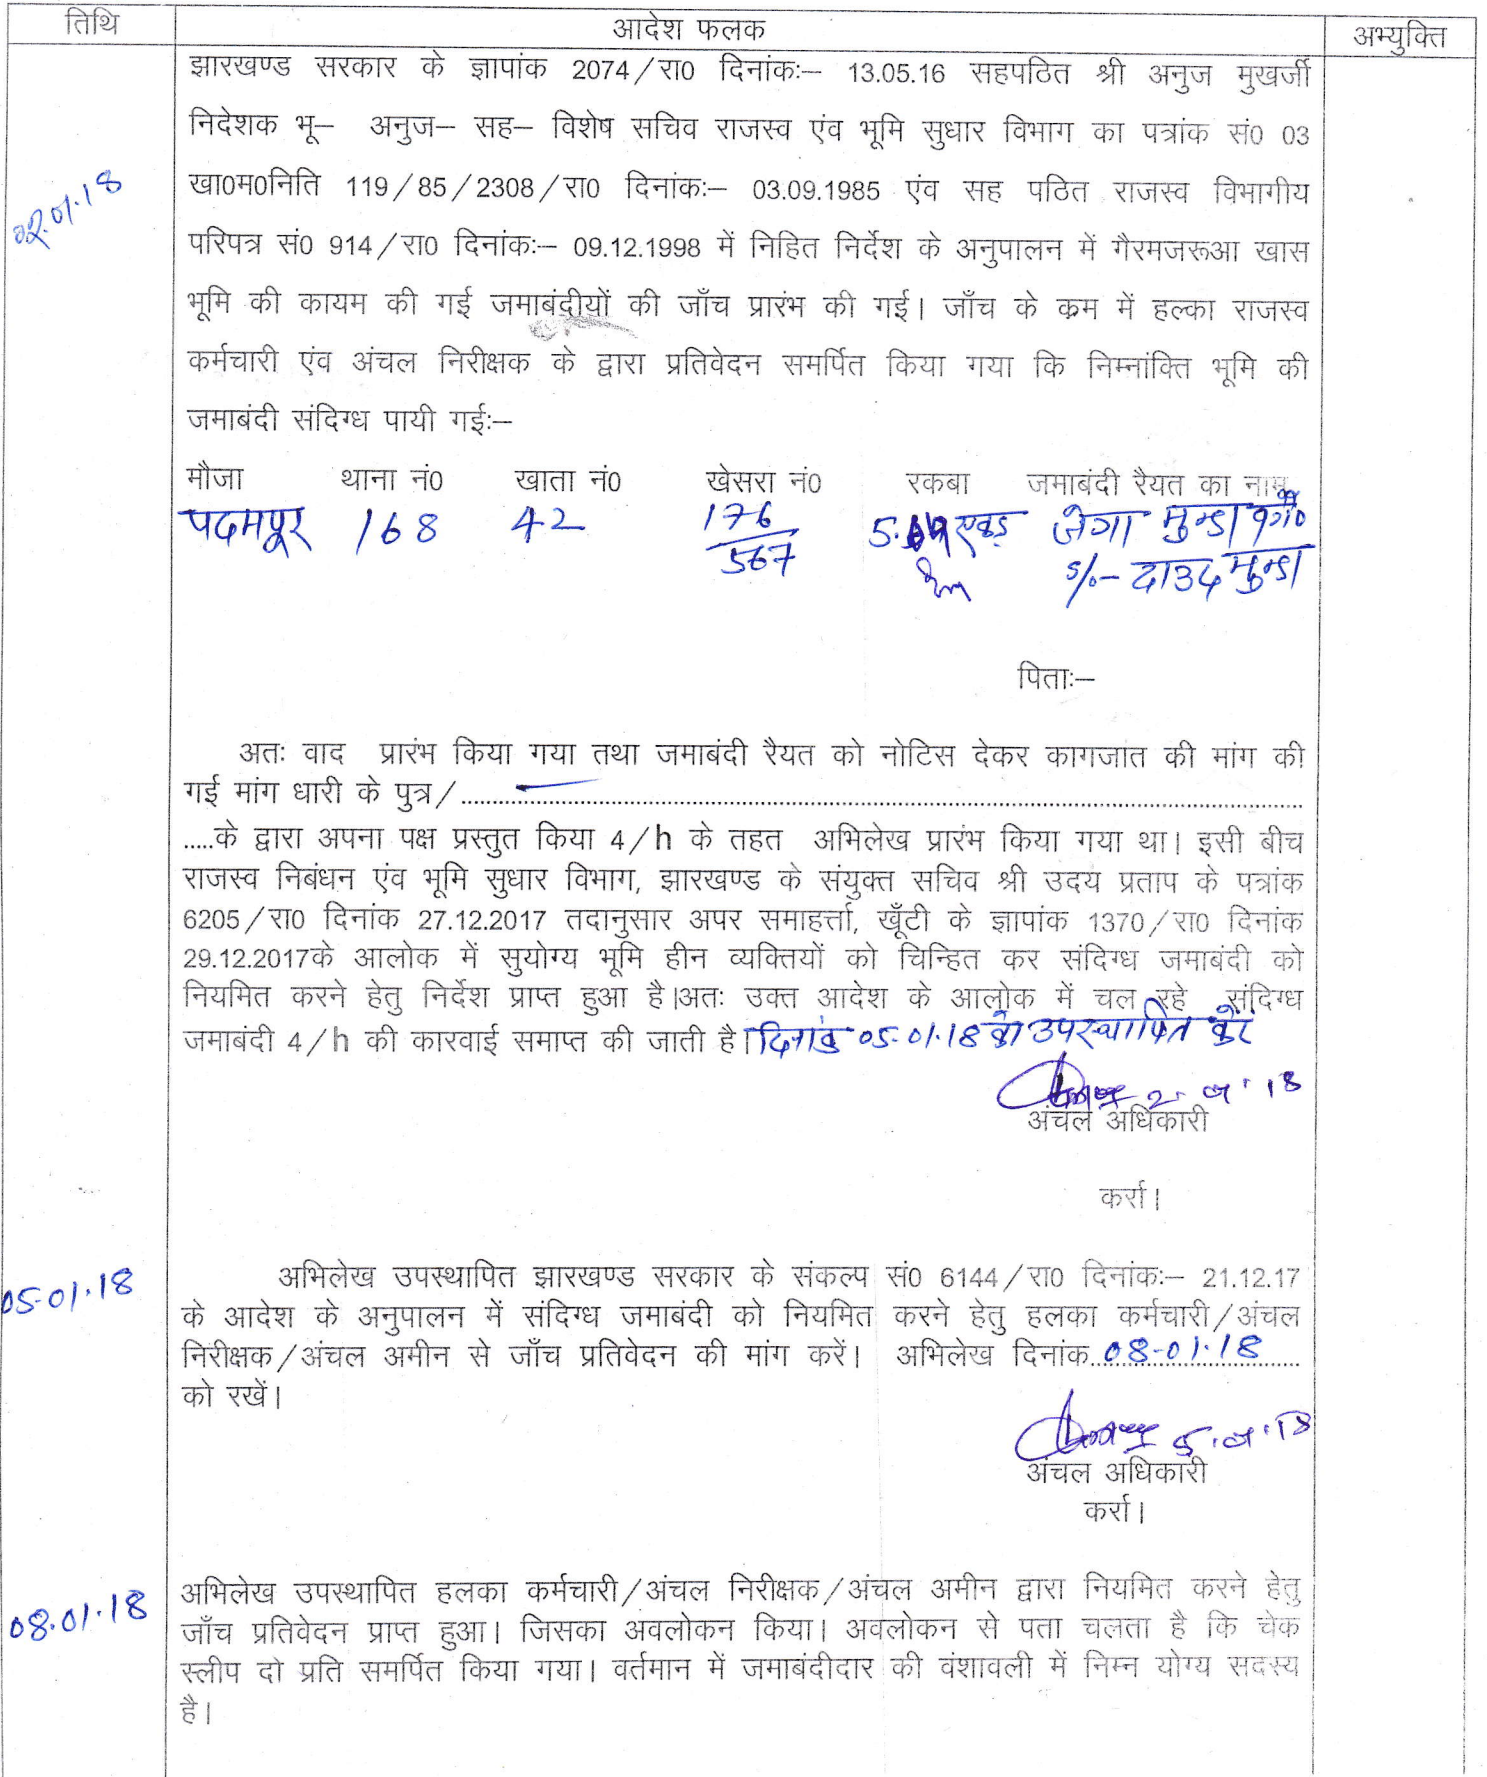 तिथि आदेश फलक अभ्युक्ति
झारखण्ड सरकार के ज्ञापांक 2074/रा0 दिनांकः– 13.05.16 सहपठित श्री अनुज मुखर्जी
निदेशक भू– अनुज– सह– विशेष सचिव राजस्व एंव भूमि सुधार विभाग का पत्रांक सं0 03
02.01.18
खा0म0निति 119/85/2308/रा0 दिनांकः– 03.09.1985 एंव सह पठित राजस्व विभागीय
परिपत्र सं0 914/रा0 दिनांकः– 09.12.1998 में निहित निर्देश के अनुपालन में गैरमजरूआ खास
भूमि की कायम की गई जमाबंदीयों की जाँच प्रारंभ की गई। जाँच के कम में हल्का राजस्व
कर्मचारी एंव अंचल निरीक्षक के द्वारा प्रतिवेदन समर्पित किया गया कि निम्नांक्ति भूमि की
जमाबंदी संदिग्ध पायी गईः–
मौजा थाना नं0 खाता नं0 खेसरा नं0 रकबा जमाबंदी रैयत का नाम
पदमपूर 168 42 176/567 एकड़ जेगा मुन्डा
s/.– दाउद मुन्डा
पिताः–
अतः वाद प्रारंभ किया गया तथा जमाबंदी रैयत को नोटिस देकर कागजात की मांग की
गई मांग धारी के पुत्र/..........
.....के द्वारा अपना पक्ष प्रस्तुत किया 4/h के तहत अभिलेख प्रारंभ किया गया था। इसी बीच
राजस्व निबंधन एंव भूमि सुधार विभाग, झारखण्ड के संयुक्त सचिव श्री उदय प्रताप के पत्रांक
6205/रा0 दिनांक 27.12.2017 तदानुसार अपर समाहर्त्ता, खूँटी के ज्ञापांक 1370/रा0 दिनांक
29.12.2017के आलोक में सुयोग्य भूमि हीन व्यक्तियों को चिन्हित कर संदिग्ध जमाबंदी को
नियमित करने हेतु निर्देश प्राप्त हुआ है।अतः उक्त आदेश के आलोक में चल रहे संदिग्ध
जमाबंदी 4/h की कारवाई समाप्त की जाती है। दिनांक 05.01.18 को उपस्थापित करें
2.01.18
अंचल अधिकारी
कर्रा।
05.01.18
अभिलेख उपस्थापित झारखण्ड सरकार के संकल्प सं0 6144/रा0 दिनांकः– 21.12.17
के आदेश के अनुपालन में संदिग्ध जमाबंदी को नियमित करने हेतु हलका कर्मचारी/अंचल
निरीक्षक/अंचल अमीन से जाँच प्रतिवेदन की मांग करें। अभिलेख दिनांक..08-01.18
को रखें।
5.01.18
अंचल अधिकारी
कर्रा।
08.01.18
अभिलेख उपस्थापित हलका कर्मचारी/अंचल निरीक्षक/अंचल अमीन द्वारा नियमित करने हेतु
जाँच प्रतिवेदन प्राप्त हुआ। जिसका अवलोकन किया। अवलोकन से पता चलता है कि चेक
स्लीप दो प्रति समर्पित किया गया। वर्तमान में जमाबंदीदार की वंशावली में निम्न योग्य सदस्य
है।